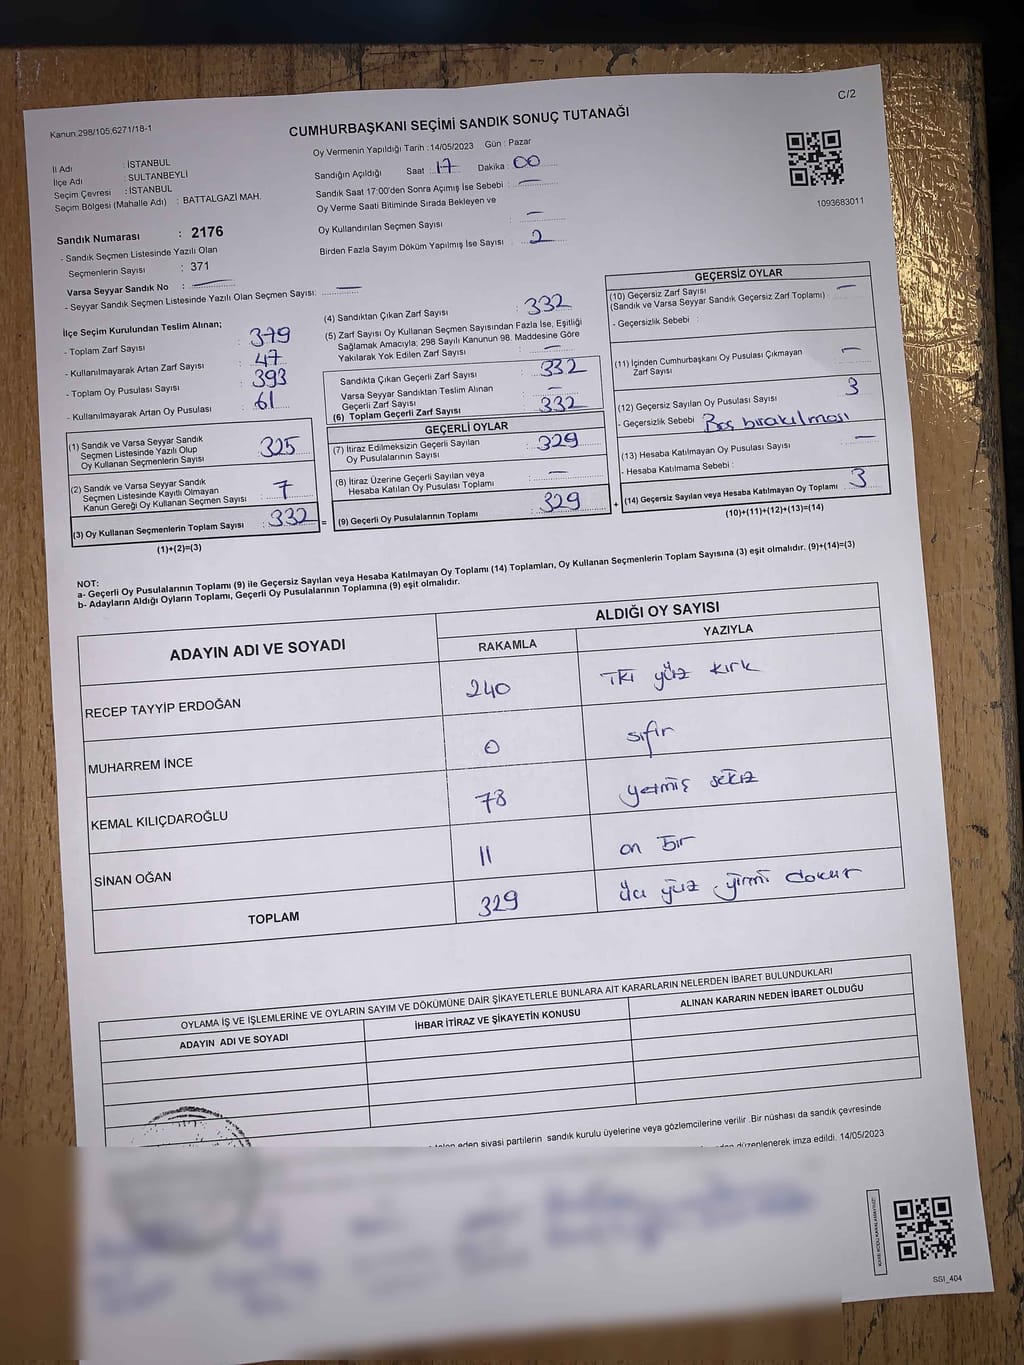 C/2
Kanun.298/105.6271/18-1
CUMHURBAŞKANI SEÇİMİ SANDIK SONUÇ TUTANAĞI
İl Adı : İSTANBUL
İlçe Adı : SULTANBEYLİ
Seçim Çevresi : İSTANBUL
Seçim Bölgesi (Mahalle Adı) : BATTALGAZİ MAH.
Oy Vermenin Yapıldığı Tarih : 14/05/2023 Gün : Pazar
Sandığın Açıldığı Saat : 17 Dakika : 00
Sandık Saat 17:00'den Sonra Açımış İse Sebebi : —
Oy Verme Saati Bitiminde Sırada Bekleyen ve
Oy Kullandırılan Seçmen Sayısı : —
Birden Fazla Sayım Döküm Yapılmış İse Sayısı : 2
1093683011
Sandık Numarası : 2176
- Sandık Seçmen Listesinde Yazılı Olan
Seçmenlerin Sayısı : 371
Varsa Seyyar Sandık No : —
- Seyyar Sandık Seçmen Listesinde Yazılı Olan Seçmen Sayısı: —
İlçe Seçim Kurulundan Teslim Alınan;
- Toplam Zarf Sayısı : 379
- Kullanılmayarak Artan Zarf Sayısı : 47
- Toplam Oy Pusulası Sayısı : 393
- Kullanılmayarak Artan Oy Pusulası : 61
(1) Sandık ve Varsa Seyyar Sandık
Seçmen Listesinde Yazılı Olup
Oy Kullanan Seçmenlerin Sayısı : 325
(2) Sandık ve Varsa Seyyar Sandık
Seçmen Listesinde Kayıtlı Olmayan
Kanun Gereği Oy Kullanan Seçmen Sayısı : 7
(3) Oy Kullanan Seçmenlerin Toplam Sayısı : 332 =
(1)+(2)=(3)
(4) Sandıktan Çıkan Zarf Sayısı : 332
(5) Zarf Sayısı Oy Kullanan Seçmen Sayısından Fazla İse, Eşitliği
Sağlamak Amacıyla; 298 Sayılı Kanunun 98. Maddesine Göre
Yakılarak Yok Edilen Zarf Sayısı : —
Sandıkta Çıkan Geçerli Zarf Sayısı : 332
Varsa Seyyar Sandıktan Teslim Alınan
Geçerli Zarf Sayısı : —
(6) Toplam Geçerli Zarf Sayısı : 332
GEÇERLİ OYLAR
(7) İtiraz Edilmeksizin Geçerli Sayılan
Oy Pusulalarının Sayısı : 329
(8) İtiraz Üzerine Geçerli Sayılan veya
Hesaba Katılan Oy Pusulası Toplamı : —
(9) Geçerli Oy Pusulalarının Toplamı : 329 +
GEÇERSİZ OYLAR
(10) Geçersiz Zarf Sayısı : —
(Sandık ve Varsa Seyyar Sandık Geçersiz Zarf Toplamı)
- Geçersizlik Sebebi :
(11) İçinden Cumhurbaşkanı Oy Pusulası Çıkmayan
Zarf Sayısı : —
(12) Geçersiz Sayılan Oy Pusulası Sayısı : 3
- Geçersizlik Sebebi : Boş bırakılması
(13) Hesaba Katılmayan Oy Pusulası Sayısı : —
- Hesaba Katılmama Sebebi :
(14) Geçersiz Sayılan veya Hesaba Katılmayan Oy Toplamı : 3
(10)+(11)+(12)+(13)=(14)
NOT:
a- Geçerli Oy Pusulalarının Toplamı (9) ile Geçersiz Sayılan veya Hesaba Katılmayan Oy Toplamı (14) Toplamları, Oy Kullanan Seçmenlerin Toplam Sayısına (3) eşit olmalıdır. (9)+(14)=(3)
b- Adayların Aldığı Oyların Toplamı, Geçerli Oy Pusulalarının Toplamına (9) eşit olmalıdır.
ADAYIN ADI VE SOYADI ALDIĞI OY SAYISI
RAKAMLA YAZIYLA
RECEP TAYYİP ERDOĞAN 240 İki yüz kırk
MUHARREM İNCE 0 sıfır
KEMAL KILIÇDAROĞLU 78 yetmiş sekiz
SİNAN OĞAN 11 on bir
TOPLAM 329 üç yüz yirmi dokuz
OYLAMA İŞ VE İŞLEMLERİNE VE OYLARIN SAYIM VE DÖKÜMÜNE DAİR ŞİKAYETLERLE BUNLARA AİT KARARLARIN NELERDEN İBARET BULUNDUKLARI
ADAYIN ADI VE SOYADI İHBAR İTİRAZ VE ŞİKAYETİN KONUSU ALINAN KARARIN NEDEN İBARET OLDUĞU
eden siyasi partilerin sandık kurulu üyelerine veya gözlemcilerine verilir .Bir nüshası da sandık çevresinde
düzenlenerek imza edildi. 14/05/2023
SSI_404